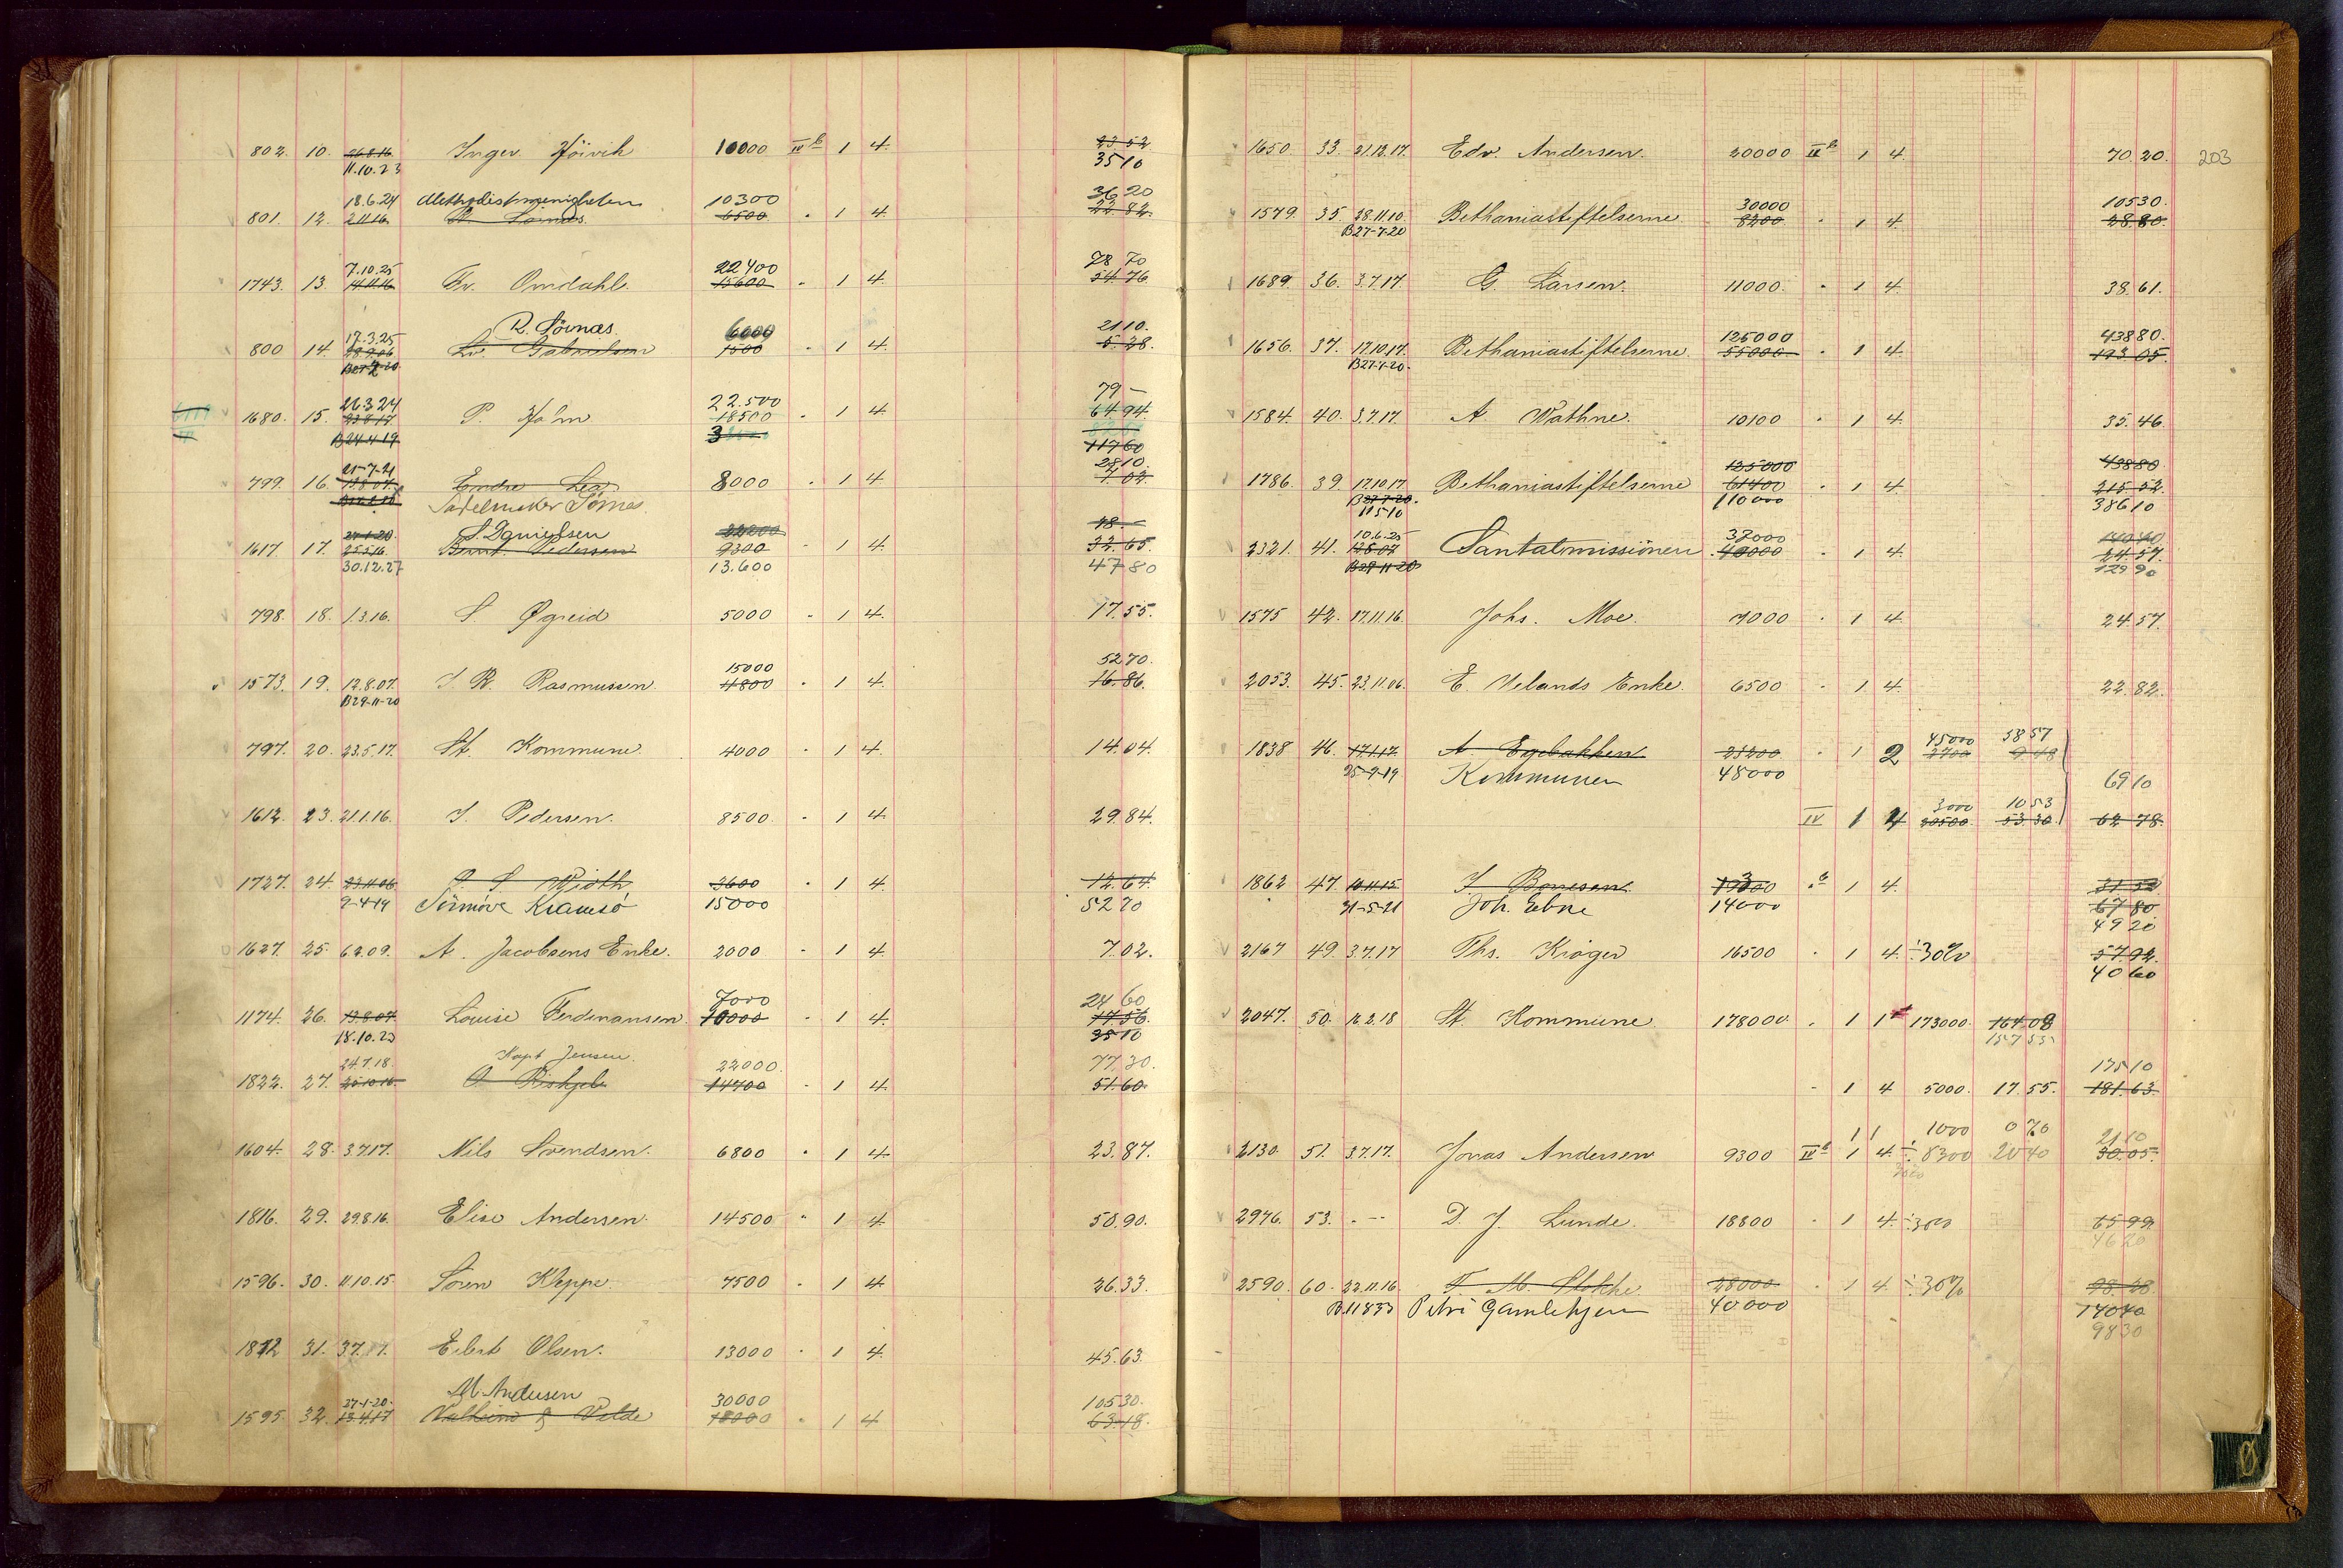 802. 10. 26.8.16 Inger Höivik 10000 IV b 1 4. 23 52
11.10.23 35 10
18.6.24 Methodistmenigheten 10300 36 20
801. 12. 2.11.16 6500 " 1 4. 22 82.
7.10.25 22400 78 70
1743. 13. 14.11.16 Fr. Omdahl 15600 " 1 4. 54 76
17.3.25 R. Sörnæs. 6000 21 10.
800 14. 28.9.06 Gabrielsen 1500 " 1 4. 5.28.
26.3.24 22.500 79 —
1680. 15. 23.8.17 P. 18500 " 1 4. 64 94.
B24.4.19 117 60
21-7-21 28 10.
799. 16. 13.8.07. Endre Lea 8000 " 1 4 7.02
Sadelmaker Sörnæs.
27-1-20. S. Danielsen 22200 78. —
1617. 17. 25.5.16. Bernt. Pedersen 9300 " 1 4. 32.65.
30.12.27 13.600 47 80
798. 18. 1.3.16. S Øgreid 5000 " 1 4. 17.55.
15000 52 70.
1573. 19. 12.8.07. J. R. Rasmussen. 4800 " 1 4. 16.86.
B29-11-20
797. 20. 23.5.17. St. Kommune. 4000 " 1 4. 14.04.
1612. 23. 21.1.16. J. Pedersen. 8500. " 1 4. 29.84.
1727. 24. 23.11.06. 3600 " 1 4. 12.64.
9-4-19 15000 52 70
1627. 25. 6.2.09. A. Jacobsens Enke. 2000 " 1 4. 7.02.
7000 24 60
1174. 26. 13.8.07. Louise Ferdinansen. 10000 " 1 4. 17.56.
18.10.23 35 10
24.7.18. Kapt Jensen. 22000. 77.30.
1822. 27. 25.10.16. 14700 " 1 4. 51.60.
1604. 28. 3.7.17. Nils Svendsen. 6800 " 1 4. 23.87.
1816. 29. 29.8.16. Elise Andersen. 14500 " 1 4. 50.90.
1596. 30. 11.10.15. Sören Kleppe. 7500 " 1 4. 26.33.
1812 31. 3.7.17. Eilert Olsen. 13000 " 1 4. 45.63.
27-1-20. M. Andersen 30000 105 30.
1595. 32. 13.4.17 Velde 18000 " 1 4 63.18.
1650. 33. 21.12.17. Edv. Andersen. 20000 IV b 1 4. 70.20. 203
30000 105 30.
1579. 35. 28.11.10. Bethaniastiftelserne. 8200 " 1 4. 28.80.
B27-7-20
1689 36. 3.7.17. G. Larsen. 11000. " 1 4. 38.61.
125000 438 80.
1656. 37. 17.10.17. Bethaniastiftelserne. 55000 " 1 4. 193 05.
B27-7-20.
1584. 40. 3.7.17. A. Wathne. 10100 " 1 4. 35.46
125000 438 80
1786. 39. 17.10.17 Bethaniastiftelserne 61400 " 1 4. 215 52.
B27-7-20. 110000 386 10
10.6.25 37000 140 40
2321. 41. 12.8.07 Santalmissionen 40000 " 1 4. 24.57.
B29-11-20 129 90
1575 42. 17.11.16. Johs. Moe. 7000 " 1 4. 24.57.
2053. 45. 23.11.06. E. Uelands Enke. 6500 " 1 4. 22.82.
45000 58 57
1838 46. 17.1.17. A. Egebakken. 23200 " 1 2 2700 9 48
25-9-19. Kommunen 48000 69 10
3000 10 53
IV 1 4 20500 53.30 62 78.
1862 47. 10.11.15 " b 1 4. 31 52
31-5-21 Joh. Ebne 14000 67 80
49 20
2167 49. 3.7.17 Ths. Kröger 16500 " 1 4. ÷30% 57.92.
40 60
2047. 50. 16.2.18 St. Kommune 178000. " 1 1 173000. 164 08
157 55
175 10
" 1 4 5000. 17.55. 181.63.
1 1 1000 0 70 21 10
2130. 51. 3.7.17. Jonas Andersen 9300 IV b 1 4 ÷ 8300 20 40 30.05.
2976. 53. " -- D. J. Lunde. 18800 " 1 4. ÷30% 65 99
46 20
2590. 60. 22.11.16. F. M. Stokke 28000. " 1 4 ÷30% 98.28
B.11833 Petri Gamlehjem 40000 140 40
98 30
Ø